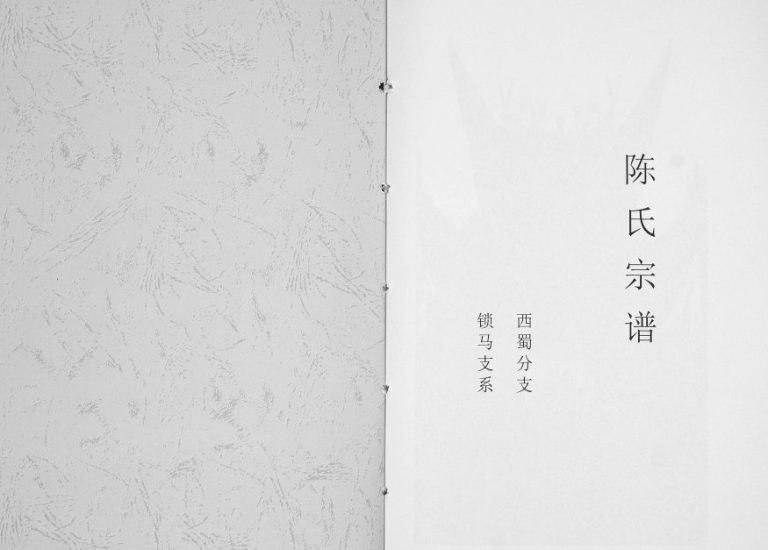 陈氏宗谱
西蜀分支
锁马支系